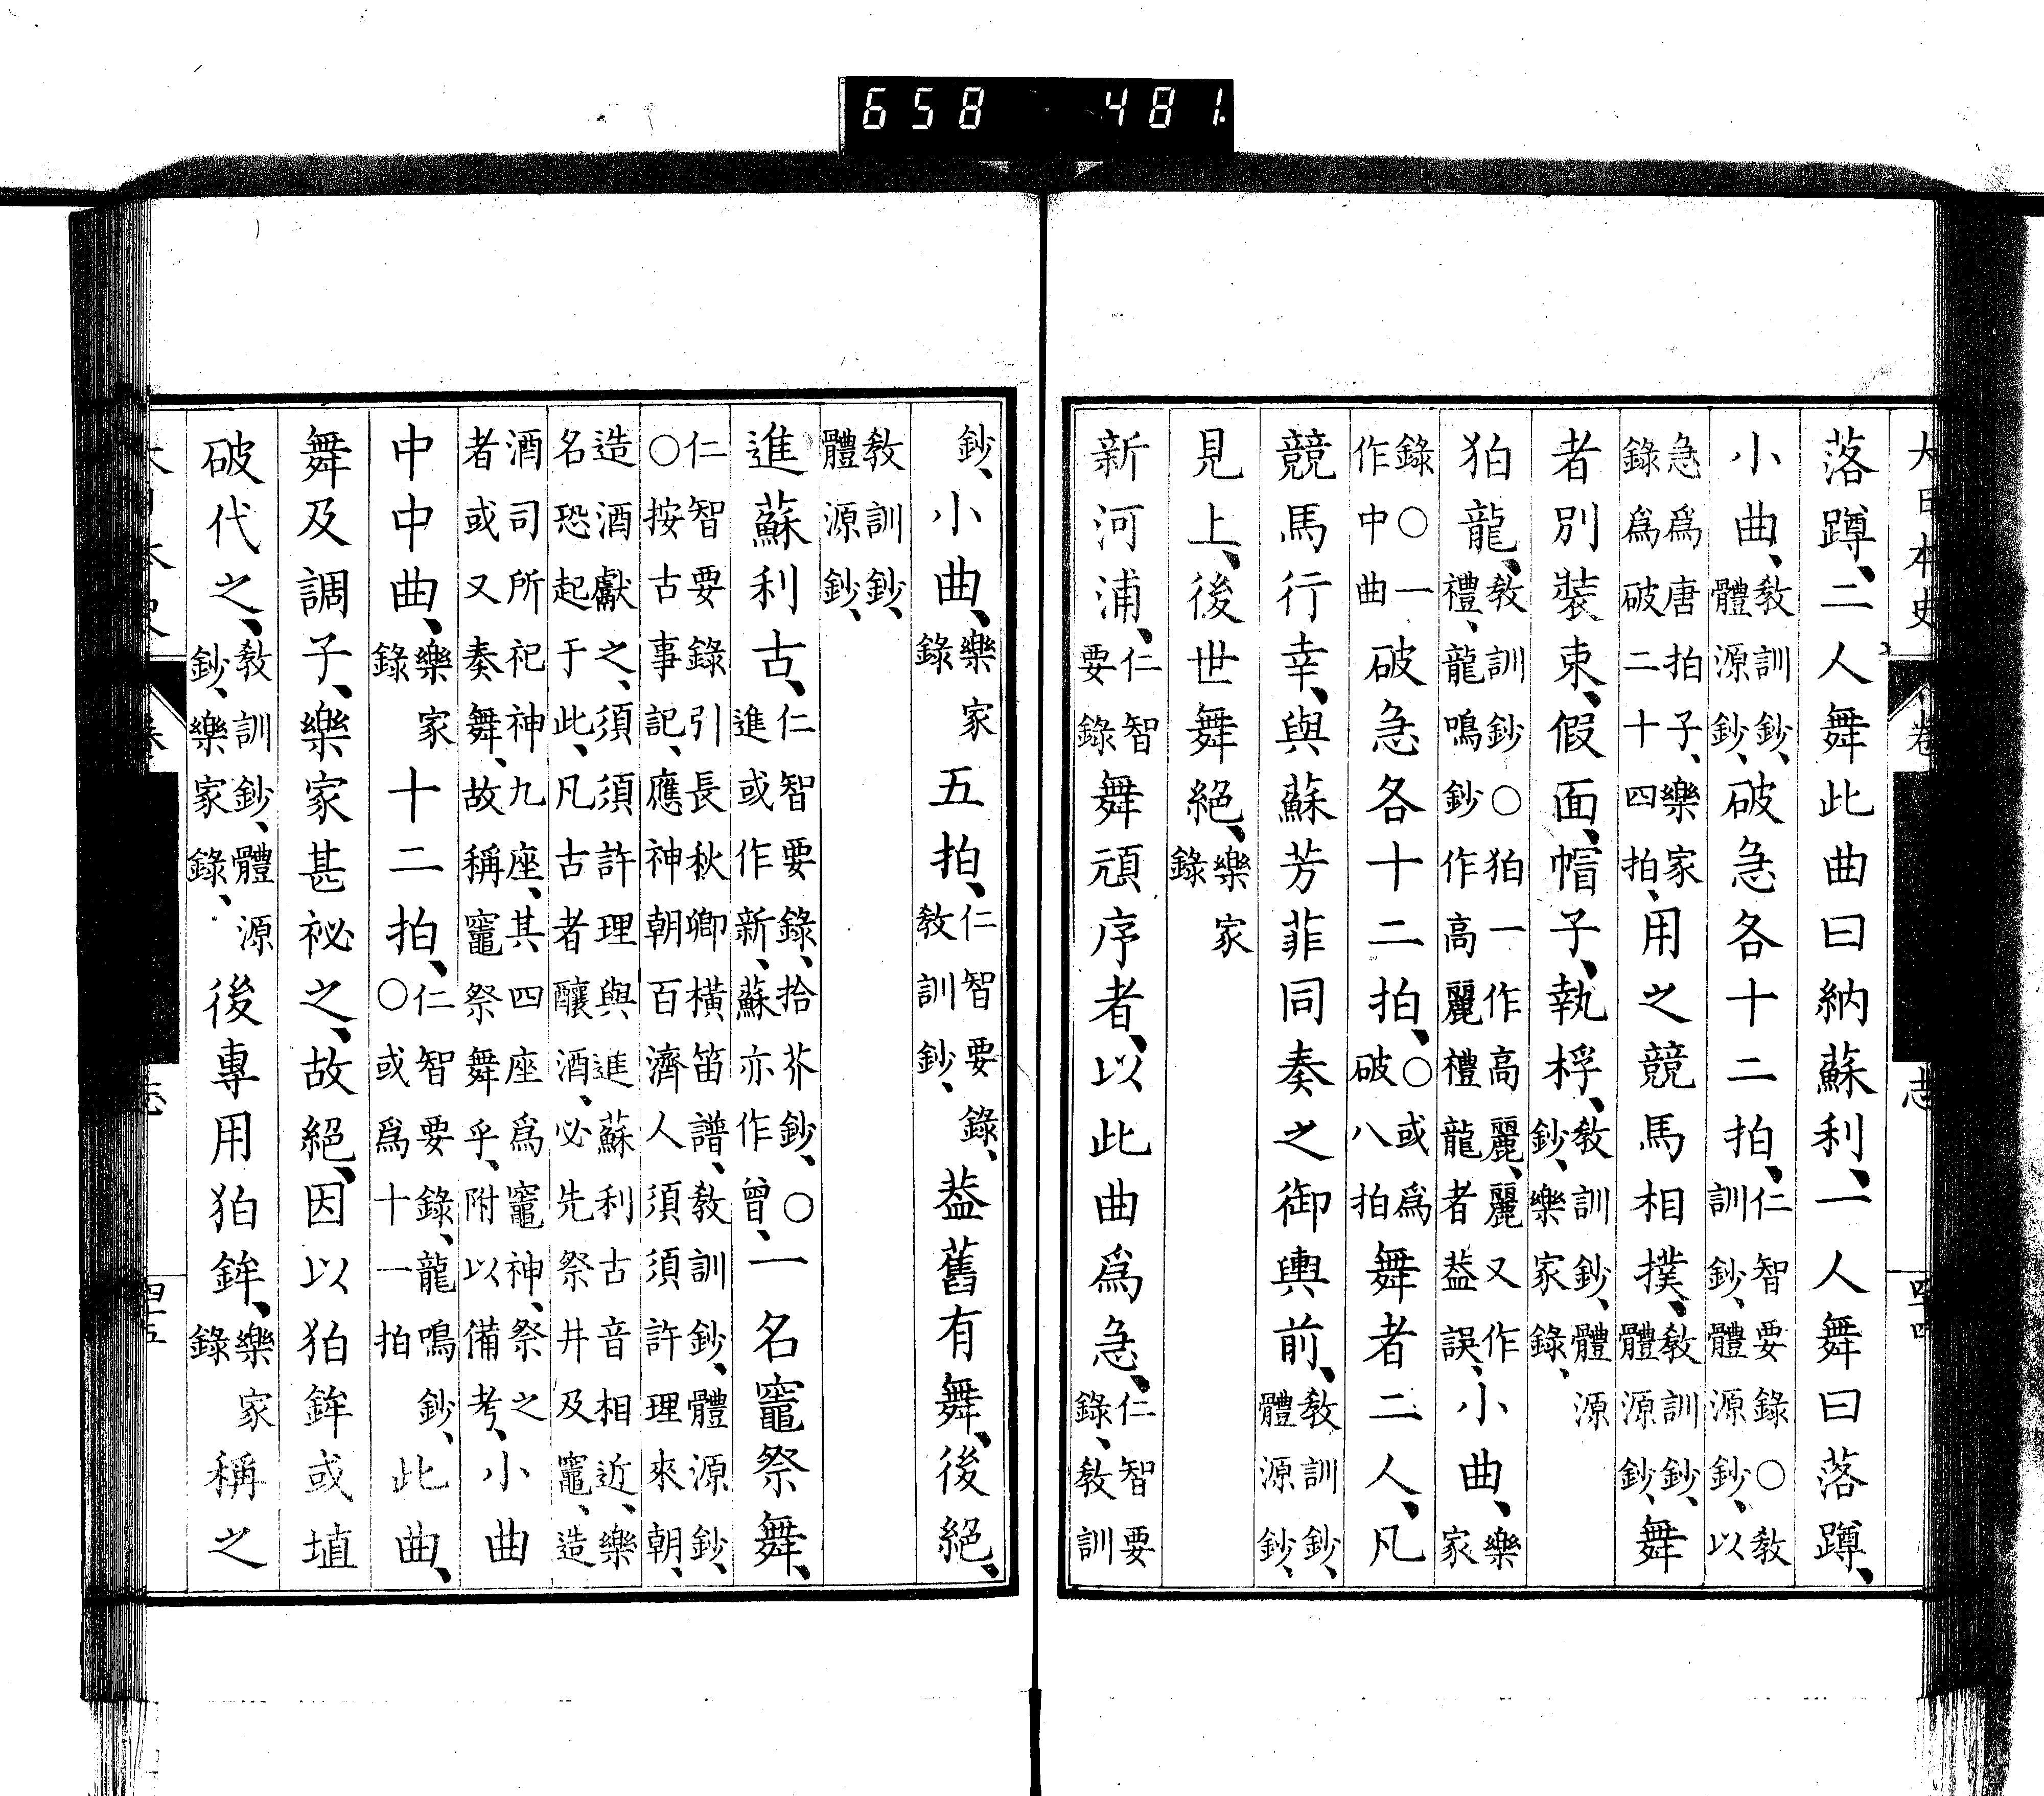 658 481
大日本史 卷 志 四十四
落蹲、二人舞此曲曰納蘇利、一人舞曰落蹲、
小曲、教訓鈔、體源鈔、破急各十二拍、仁智要錄○教訓鈔、體源鈔、以
急爲唐拍子、樂家錄爲破二十四拍、用之競馬相撲、教訓鈔、體源鈔、舞
者別裝束、假面、帽子、執桴、教訓鈔、體源鈔、樂家錄、
狛龍、教訓鈔○狛一作高麗、麗又作禮、龍鳴鈔作高麗禮龍者蓋誤、小曲、樂家
錄○一作中曲破急各十二拍、○或爲破八拍舞者二人、凡
競馬行幸、與蘇芳菲同奏之御輿前、教訓鈔、體源鈔、
見上、後世舞絕、樂家錄
新河浦、仁智要錄舞頑序者、以此曲爲急、仁智要錄、教訓
鈔、小曲、樂家錄五拍、仁智要錄、教訓鈔、蓋舊有舞、後絕、
教訓鈔、體源鈔、
進蘇利古、仁智要錄、拾芥鈔、○進或作新、蘇亦作曾、一名竈祭舞、
仁智要錄引長秋卿橫笛譜、教訓鈔、體源鈔、○按古事記、應神朝百濟人須須許理來朝、
造酒獻之、須須許理與進蘇利古音相近、樂名恐起于此、凡古者釀酒、必先祭井及竈、造
酒司所祀神九座、其四座爲竈神、祭之者或又奏舞、故稱竈祭舞乎、附以備考、小曲
中中曲、樂家錄十二拍、仁智要錄、龍鳴鈔、○或爲十一拍此曲、
舞及調子、樂家甚祕之、故絕、因以狛鉾或埴
破代之、教訓鈔、體源鈔、樂家錄、後專用狛鉾、樂家錄稱之